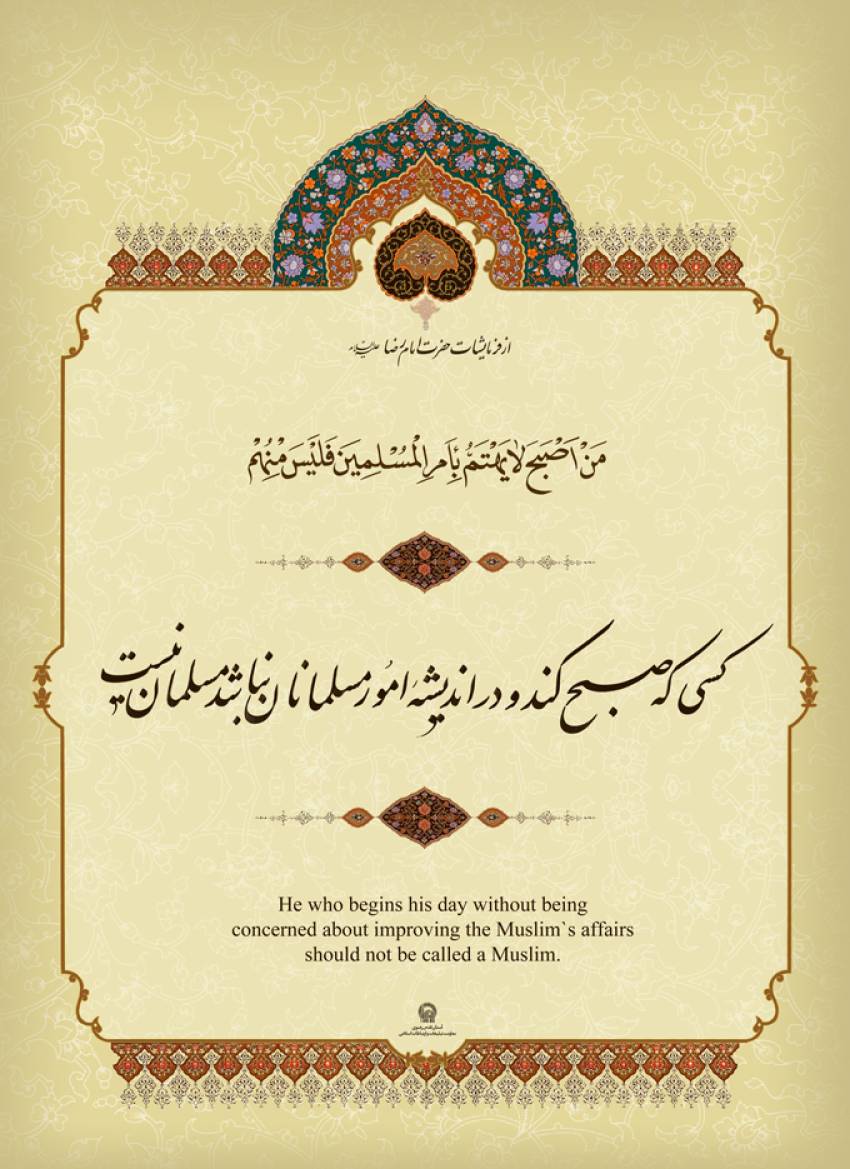 از فرمایشات حضرت امام رضا علیه‌السلام
مَنْ اَصْبَحَ لایَهْتَمُّ بِأَمرِ الْمُسْلِمِینَ فَلَیْسَ مِنْهُمْ
کسی که صبح کند و در اندیشهٔ امُور مسلمانان نباشد مسلمان نیست
He who begins his day without being
concerned about improving the Muslim`s affairs
should not be called a Muslim.
آستان قدس رضوی
معاونت تبلیغات و ارتباطات اسلامی